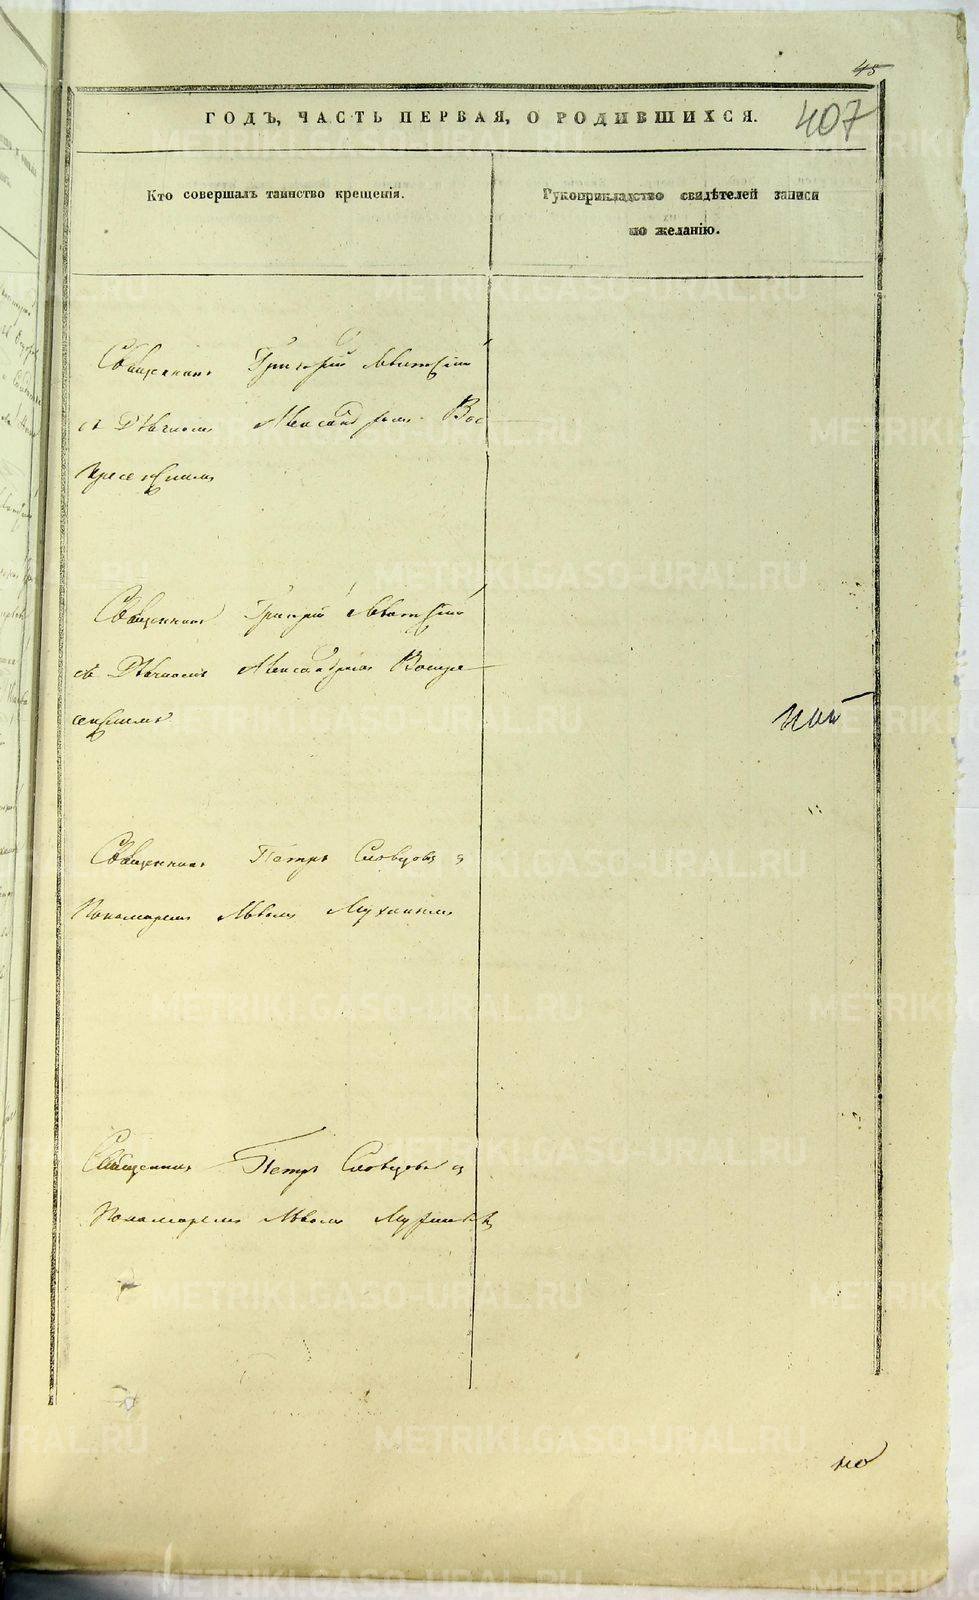 45
407
ГОДЪ, ЧАСТЬ ПЕРВАЯ, О РОДИВШИХСЯ.
Кто совершалъ таинство крещенія.
Рукоприкладство свидѣтелей записи
по желанію.
Священникъ Григорій
съ Дьячкомъ Александромъ Вос
кресенскимъ
Священникъ Григорій
съ Дьячкомъ Александромъ Воскре
сенскимъ
Священникъ Петръ Словцовъ с
Пономаремъ
Священникъ Петръ Словцовъ с
Пономаремъ
METRIKI.GASO-URAL.RU